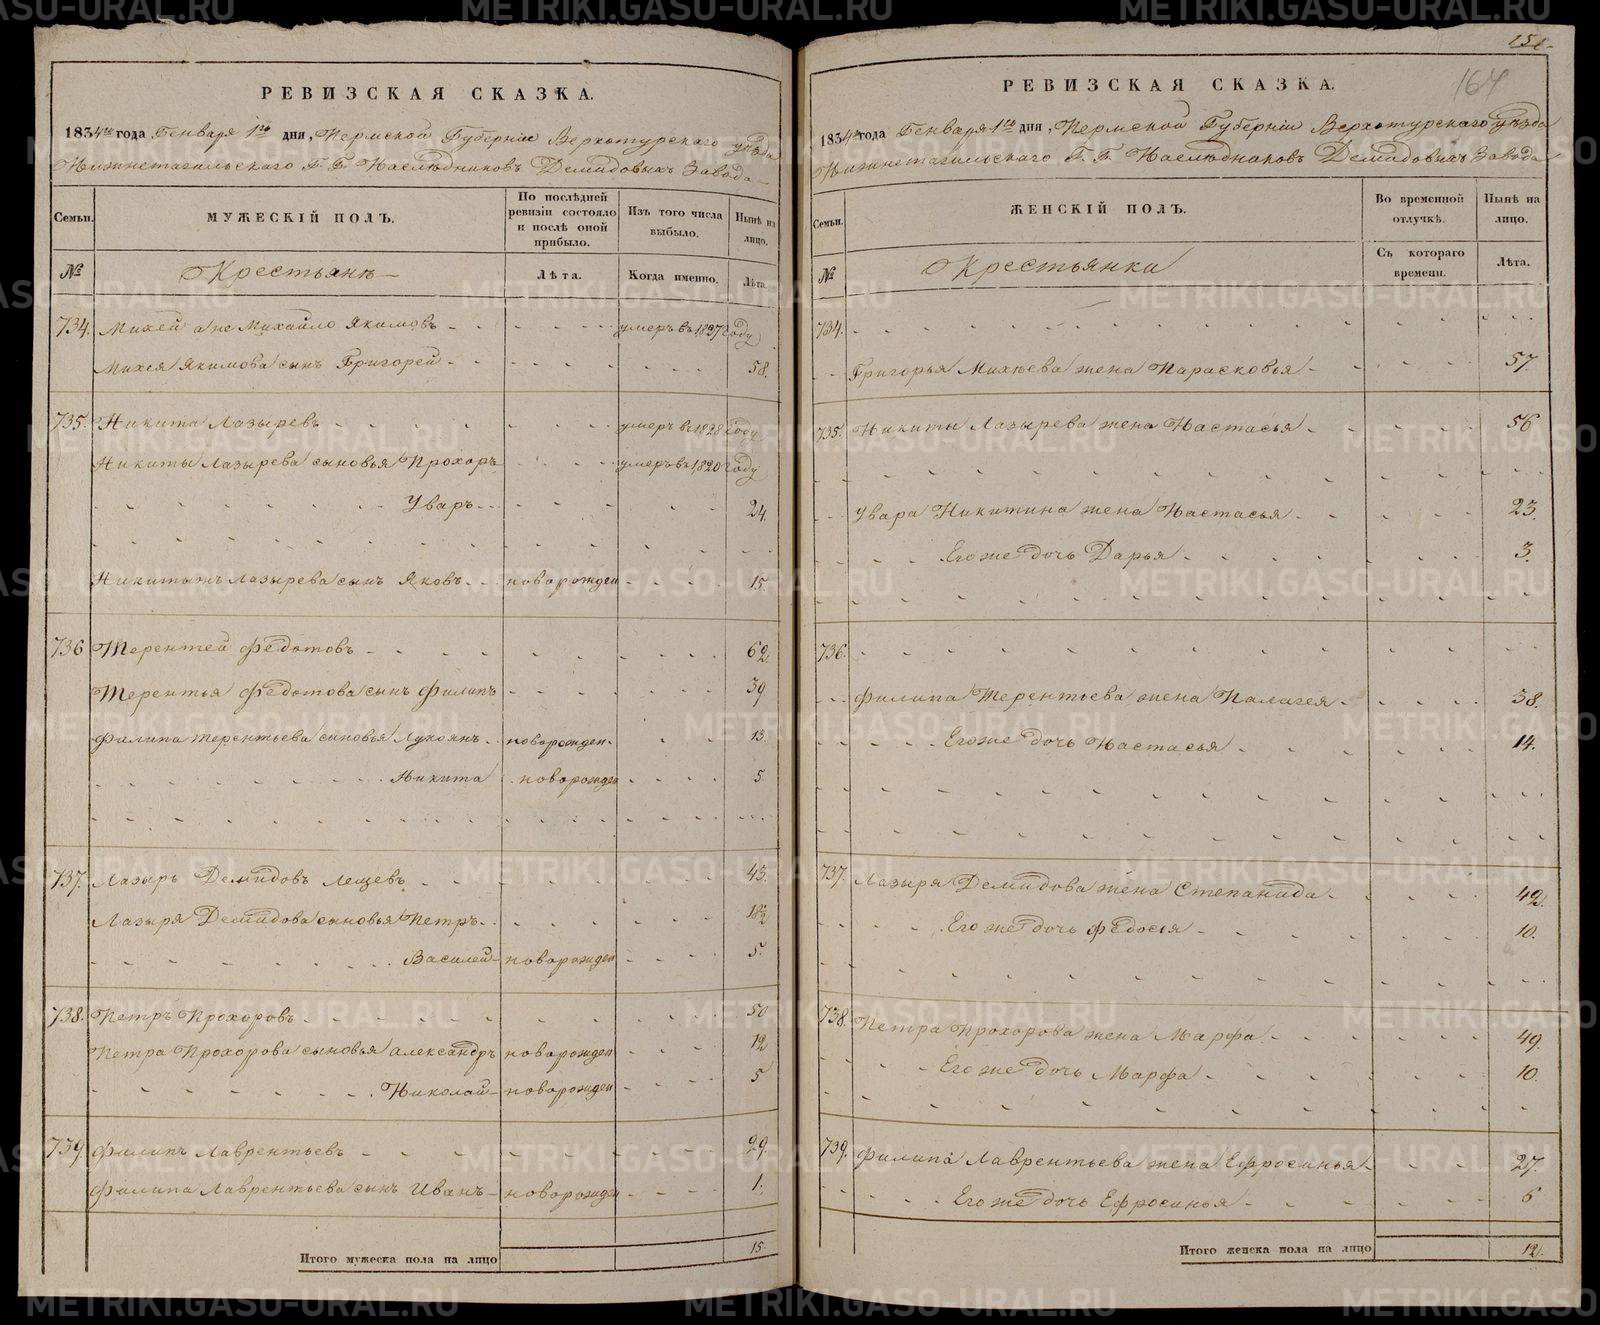 РЕВИЗСКАЯ СКАЗКА.
1834го года Генваря 1го дня, Пермской Губерніи Верхотурскаго уѣзда
Нижнетагильскаго Г. Г. Наслѣдниковъ Демидовыхъ Завода
Семьи.
МУЖЕСКІЙ ПОЛЪ.
По послѣдней ревизіи состояло и послѣ оной прибыло.
Изъ того числа выбыло.
Нынѣ на лицо.
№
Крестьяне
Лѣта.
Когда именно.
Лѣта.
734. Михей а не Михайло Якимовъ умеръ въ 1827 году
Михея Якимова сынъ Григорей 58.
735. Никита Лазыревъ умеръ въ 1828 году
Никиты Лазырева сыновья Прохоръ умеръ въ 1820 году
Уваръ 24.
Никиты жъ Лазырева сынъ Яковъ новорожден 15.
736 Терентей Федотовъ 62
Терентья Федотова сынъ Филипъ 39.
Филипа Терентьева сыновья Лукоянъ новорожден. 13.
Никита новорожден 5
737. Лазырь Демидовъ Лещевъ 43.
Лазыря Демидова сыновья Петръ 18½
Василей новорожден 5.
738. Петръ Прохоровъ 50
Петра Прохорова сыновья Александръ новорожден 12
Николай новорожден 5
739 Филипъ Лаврентьевъ 29.
Филипа Лаврентьева сынъ Иванъ новорожден 1.
Итого мужеска пола на лицо 15.
151.
164
РЕВИЗСКАЯ СКАЗКА.
1834го года Генваря 1го дня, Пермской Губерніи Верхотурскаго уѣзда
Нижнетагильскаго Г. Г. Наслѣдниковъ Демидовыхъ Завода
Семьи.
ЖЕНСКІЙ ПОЛЪ.
Во временной отлучкѣ.
Нынѣ на лицо.
№
Крестьянки
Съ котораго времени.
Лѣта.
734.
Григорья Михѣева жена Парасковья 57.
735. Никиты Лазырева жена Настасья 56
Увара Никитина жена Настасья 23.
Его же дочь Дарья 3.
736.
Филипа Терентьева жена Палагея 38.
Его же дочь Настасья 14.
737. Лазыря Демидова жена Степанида 42.
Его же дочь Федосья 10.
738. Петра Прохорова жена Марфа 49.
Его же дочь Марфа 10.
739. Филипа Лаврентьева жена Ефросинья 27.
Его же дочь Ефросинья 6
Итого женска пола на лицо 12.
METRIKI.GASO-URAL.RU